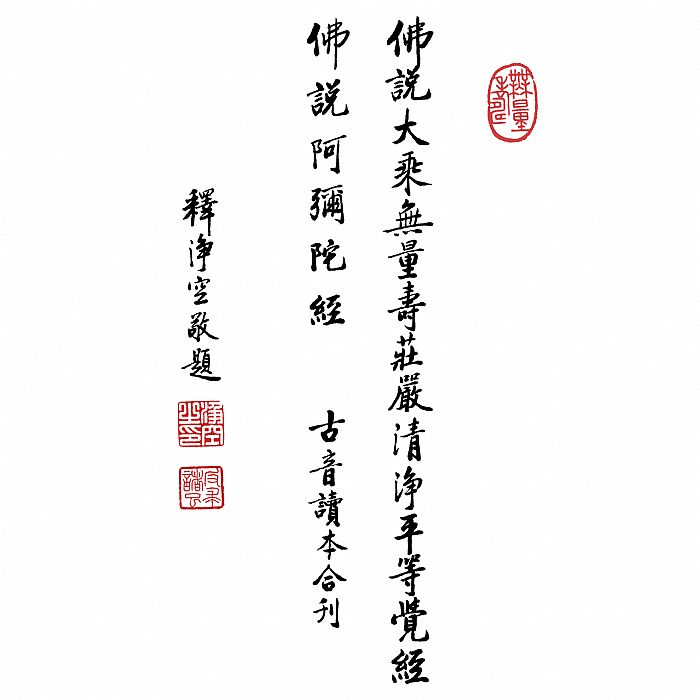 無量壽印
佛說大乘無量壽莊嚴清淨平等覺經
佛說阿彌陀經 古音讀本合刊
釋淨空敬題